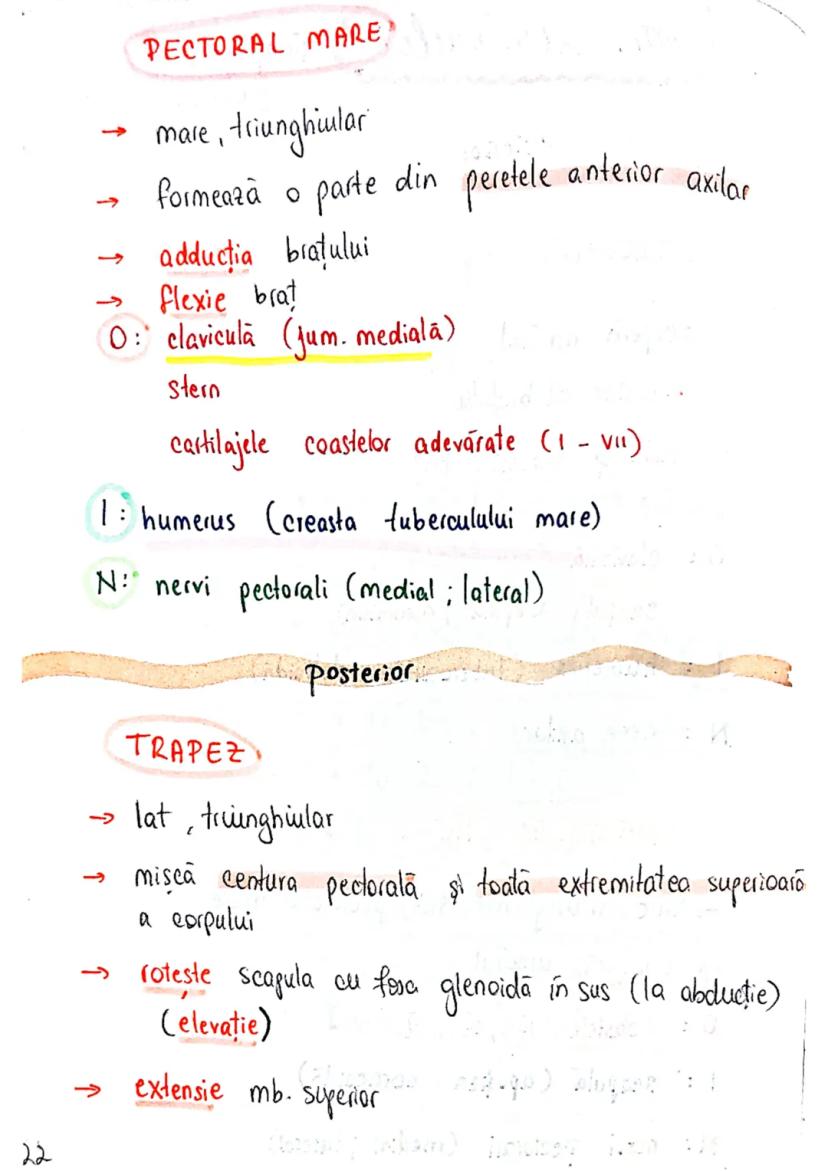 PECTORAL MARE
→ mare, triunghiular
→ formează o parte din peretele anterior axilar
→ adducția brațului
→ flexie braț
O: claviculă (jum. medială)
stern
cartilajele coastelor adevărate (I - VII)
I: humerus (creasta tuberculului mare)
N: nervi pectorali (medial; lateral)
posterior
TRAPEZ
→ lat, triunghiular
→ mișcă centura pectorală și toată extremitatea superioară
a corpului
→ rotește scapula cu fosa glenoidă în sus (la abducție)
(elevație)
→ extensie mb. superior
22